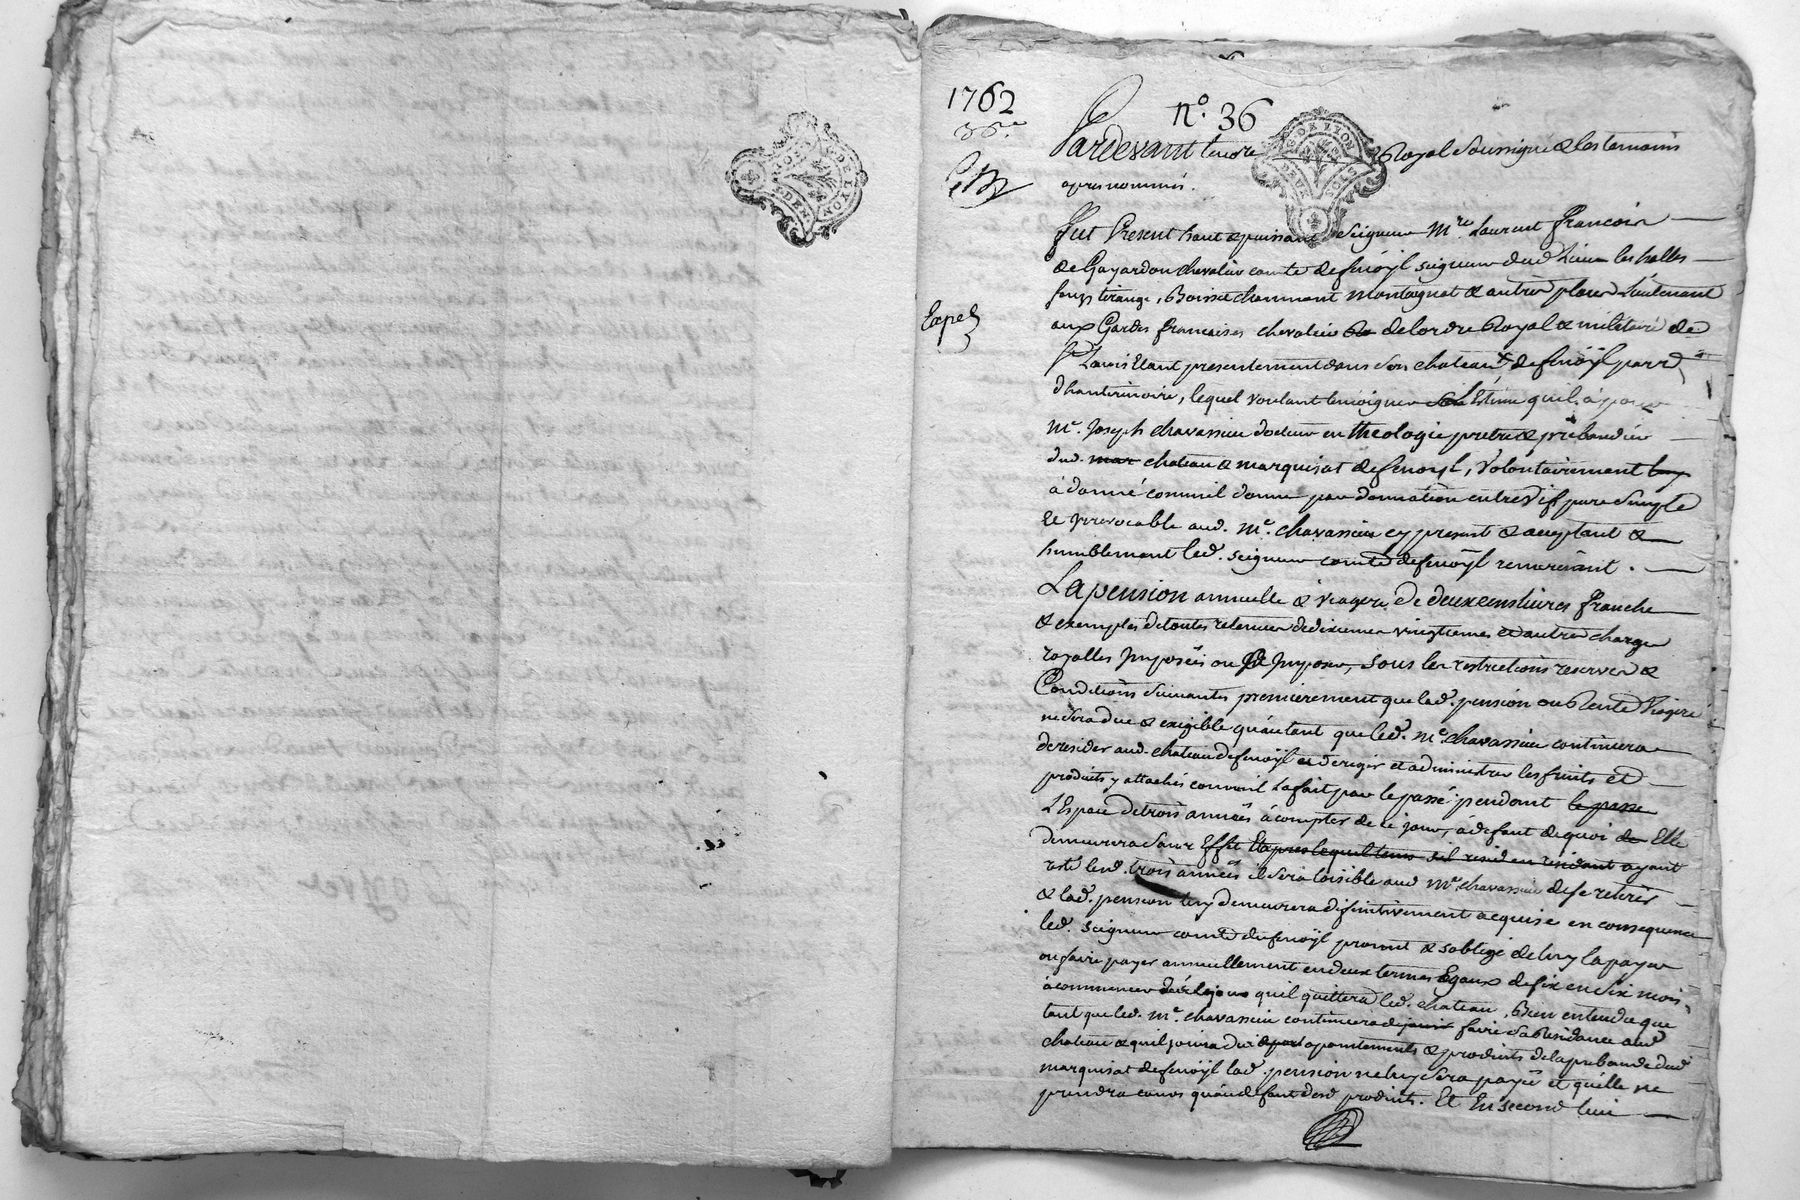 1762
n.º 36
36.e
Pardevant le no.re Royal soussigné & les temoins
apres nommés.
fut Present haut & puissant seigneur M.re Laurent francois
de Gayardon chevalier comte de fenoÿl seigneur dud. Lieu les halles
tirange, Boisset chaumont montagnat & autres places Lieutenant
Expé
aux Gardes francaises chevalier de lordre Royal & militaire de
s.t Louis Etant presentement dans son chateau de fenoÿl parr.e
dhauterivoire, lequel voulant temoigner L'Estime quil à pour
m.e Joseph chavassieu docteur en theologie pretre & prebandier
dud. mar chateau & marquisat de fenoyl, volontairement luy
à donné comme il donne par donnation entre vif pure simple
& irrevocable aud. m.e chavassieu cy present & acceptant &
humblement led. seigneur comte de fenoÿl remerciant.
La pension annuelle & viagere de deux cens livres franche
& exemptes de toutes retenues de dixiemes vingtiemes et autres charges
royalles Imposées ou à Imposer, sous les restrictions reserves &
Conditions suivantes premierement que lad. pension ou Rente Viagere
ne sera due & exigible qu'autant que led. m.e chavassieu continuera
de resider aud. chateau de fenoÿl et de regir et administrer les fruits et
produits y attachés comme il La fait par le passé pendant le passé
L'Espace de trois années à compter de ce jour, à defaut de quoi de Elle
demeurera sans Effet Et apres lequel tems sil resident residant ayant
resté lesd. trois années il sera loisible aud. m.e chavassieu de se retirer
& lad. pension luy demeurera difinitivement acquise en consequence
led. seigneur comte de fenoÿl promet & s'oblige de luy la payer
ou faire payer annuellement en deux termes Egaux de six en six mois
à commencer dès le jour quil quittera led. chateau, Bien entendu que
tant que led. m.e chavassieu continuera de faire sa Residence aud.
chateau & quil jouira des apointements & produits de la prebande dud.
marquisat de fenoÿl lad. pension ne luy sera payée et qu'elle ne
prendra cours qu'au defaut desd. produits. Et En second lieu